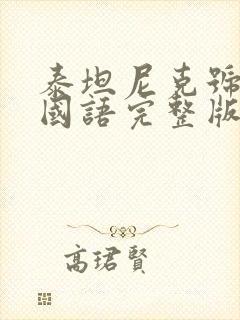 泰坦尼克號
國語完整版
高珺賢